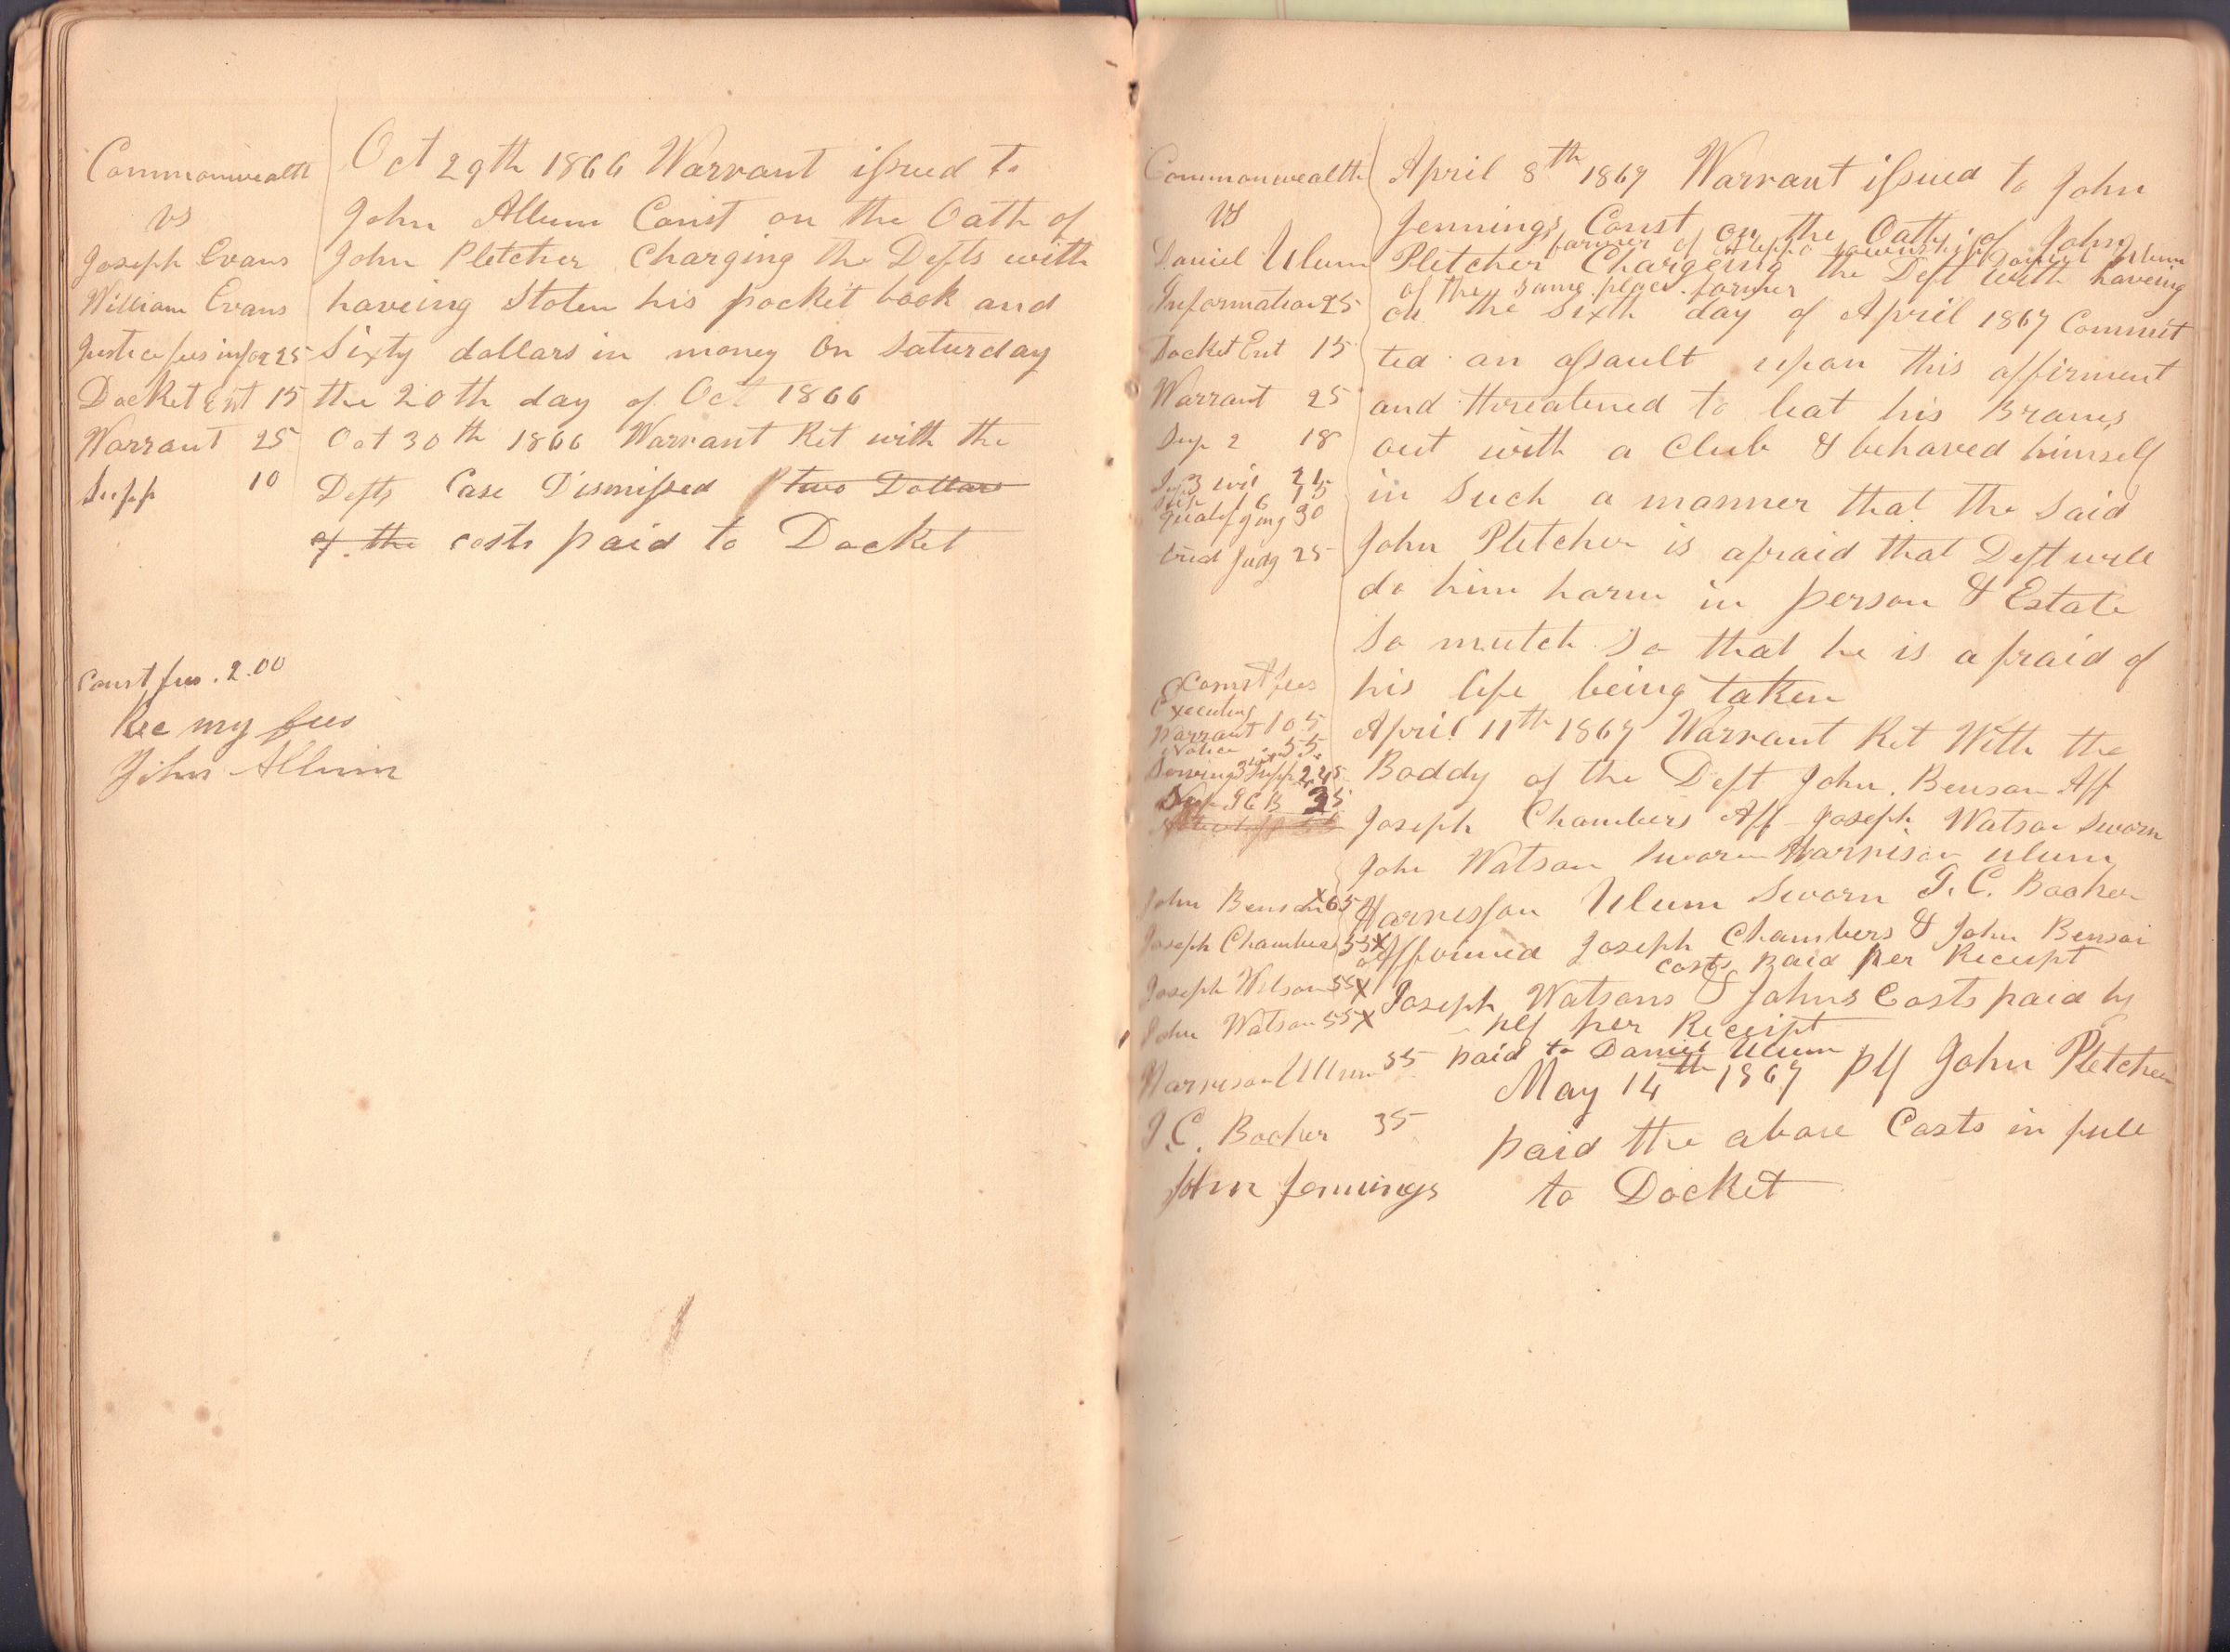 Commonwealth
vs
Joseph Evans
William Evans
Justice fees infor 25
Docket Ent 15
Warrant 25
Supp 10
Const fees . 2.00
Rec my fees
John Allum
Oct 29th 1866 Warrant issued to
John Allum Const on the Oath of
John Pletcher Charging the Defts with
haveing Stolen his pocket book and
Sixty dollars in money on Saturday
the 20th day of Oct 1866
Oct 30th 1866 Warrant Ret with the
Defts Case Dismissed two Dollars
of the costs paid to Docket
Commonwealth
vs
Daniel Ulum
Information 25
Docket Ent 15
Warrant 25
Sup 2 18
Sup 3 wit 21
15
qualifying 6 30
tried Judg 25
Const fees
Executing
Warrant 105
Notice 55
Serving 3 Supp 2.25
35
John Benson X65
Joseph Chambers 55X
Joseph Watson 55X
John Watson 55X
Harrison Ulum 55
J C. Booher 35
John Jennings
April 8th 1867 Warrant issued to John
Jennings Const on the Oath of John
farmer of township Daniel Ulum
Pletcher Chargeing the Deft with haveing
of the same place farmer
on the Sixth day of April 1867 Commit
ted an assault upon this affirment
and threatened to beat his Branes
out with a Club & behaved himself
in Such a manner that the Said
John Pletcher is afraid that Deft will
do him harm in person & Estate
So mutch So that he is afraid of
his life being taken
April 11th 1867 Warrant Ret With the
Boddy of the Deft John Benson Aff
Joseph Chambers Aff Joseph Watson Sworn
John Watson Sworn Harrison Ulum
Harrisson Ulum Sworn J. C. Booher
Affirmed Joseph Chambers & John Benson
costs paid per Receipt
Joseph Watsons & Johns Costs paid by
plf per Receipt
paid to Daniel Ulum
May 14th 1867 plf John Pletcher
paid the above Costs in full
to Docket